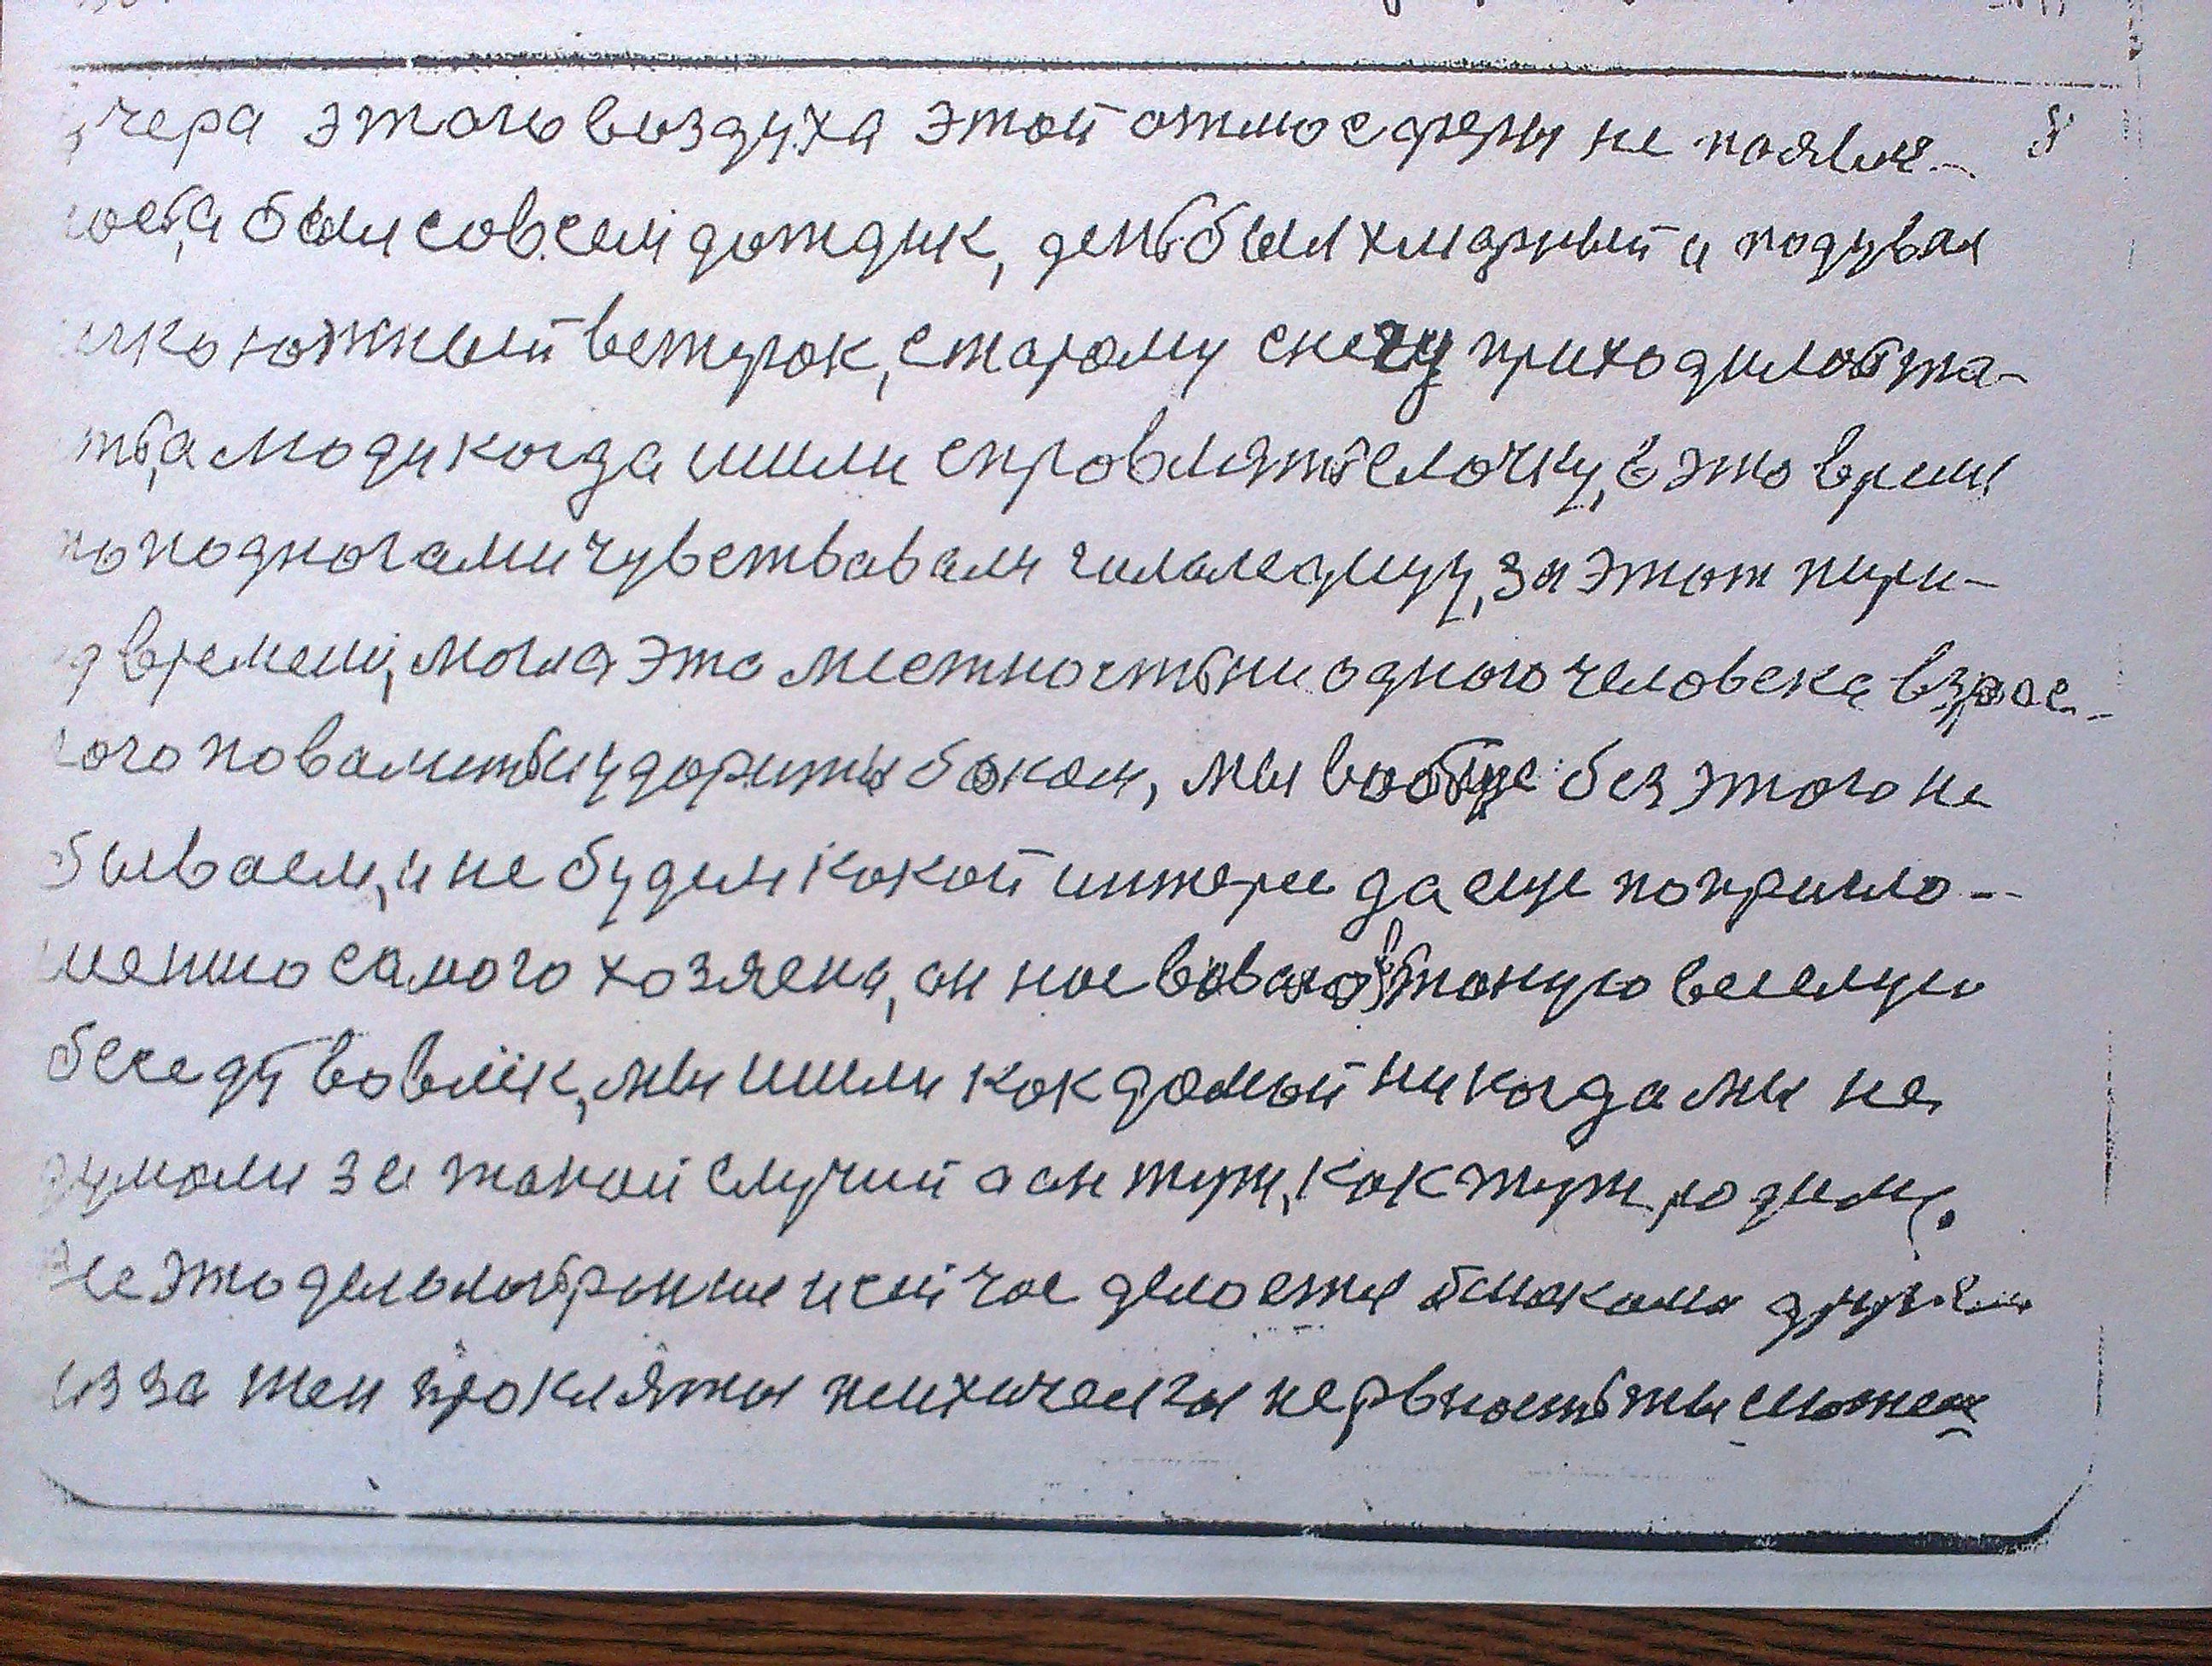 чера этого воздуха этой отмосферы не появи- 8
лость, а был совсем дождик, день был хмарный и подувал
южный ветерок, старому снегу приходилость та-
ть, а люди когда шли справлять елочку, в это время
по подногами чувствавали гололедицу, за этот пери-
д времени, могла это местность ни одного человека взрос-
лого повалить и ударить боком, мы вообще без этого не
бываем, и не будем какой интерес да еще по пригло-
шению самого хозяена, он нас в такую веселую
беседу вовлёк, мы шли как домой никогда мы не
думали за такой случий а он тут, как тут родимц.
Все это делалость раньше и сейчас делается
из за теи прокляты психическы нервность ты сможеш